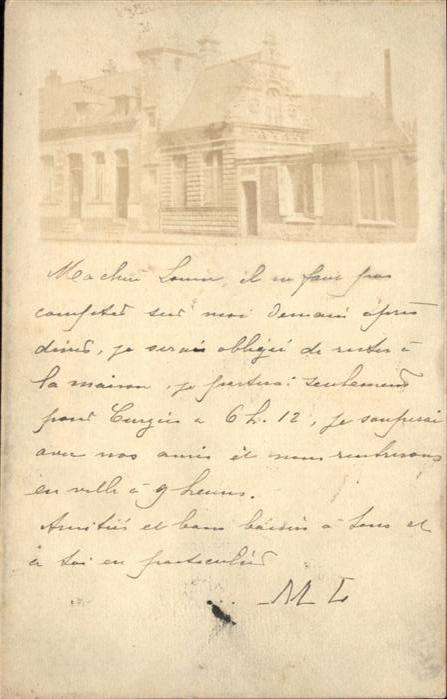 Ma chère Louise, il ne faut pas
compter sur moi demain après
diner, je serai obligée de rester à
la maison, je partirai seulement
pour Curgies à 6 h. 12, je souperai
avec nos amis et nous rentrerons
en ville à 9 heures.
Amitiés et bons baisers à tous et
à toi en particulier
M L